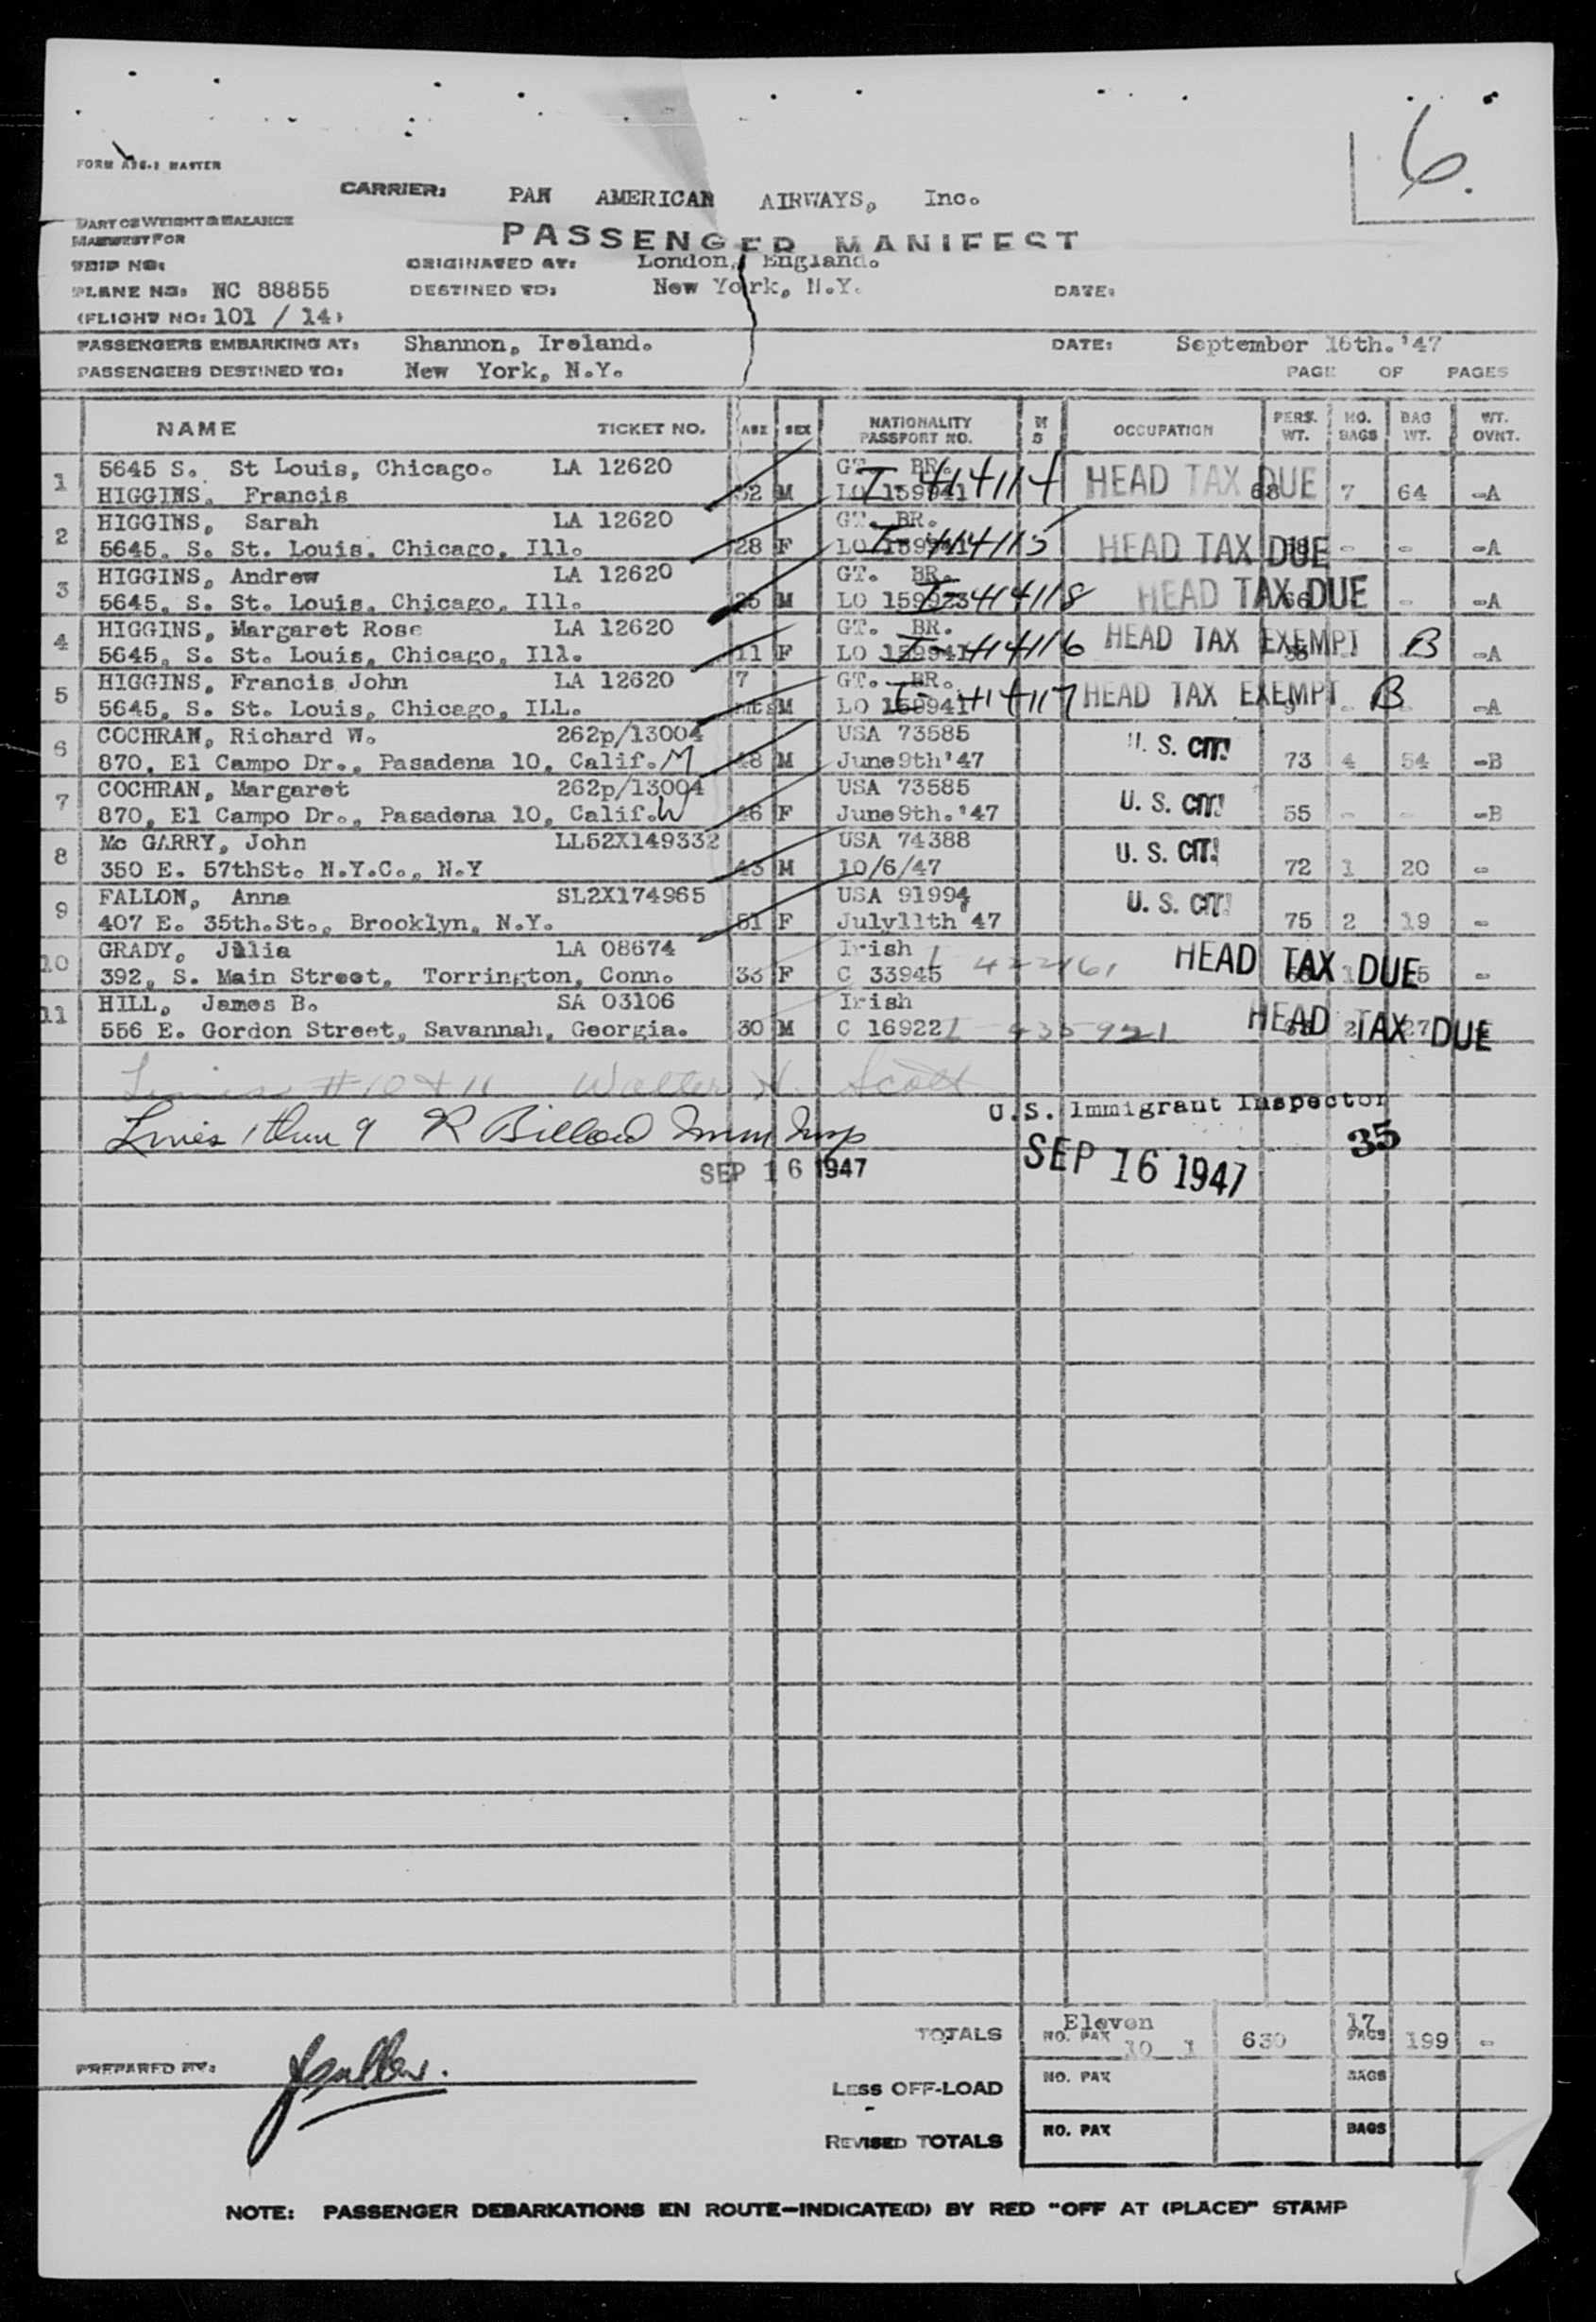 6.
FORM
MASTER
CARRIER: PAN AMERICAN AIRWAYS, Inc.
PART OF WEIGHT & BALANCE
MANIFEST FOR
PASSENGER MANIFEST
TRIP NO: ORIGINATED AT: London, England.
PLANE NO: NC 88855 DESTINED TO: New York, N.Y. DATE:
(FLIGHT NO: 101 / 14)
PASSENGERS EMBARKING AT: Shannon, Ireland. DATE: September 16th.'47
PASSENGERS DESTINED TO: New York, N.Y. PAGE OF PAGES
NAME TICKET NO. AGE SEX NATIONALITY PASSPORT NO. M S OCCUPATION PERS. WT. NO. BAGS BAG WT. WT. OVNT.
1 5645 S. St Louis, Chicago. LA 12620 GT. BR. I-414114 HEAD TAX DUE
HIGGINS, Francis 32 M LO 159941 68 7 64 -A
2 HIGGINS, Sarah LA 12620 GT. BR. I-414115
5645, S. St. Louis, Chicago, Ill. 28 F LO 159941 HEAD TAX DUE - - -A
3 HIGGINS, Andrew LA 12620 GT. BR.
5645, S. St. Louis, Chicago, Ill. M LO 159923 I-414118 HEAD TAX DUE - -A
4 HIGGINS, Margaret Rose LA 12620 GT. BR. HEAD TAX EXEMPT B
5645, S. St. Louis, Chicago, Ill. 11 F LO 159941 I-414116 -A
5 HIGGINS, Francis John LA 12620 7 GT. BR. HEAD TAX EXEMPT B
5645, S. St. Louis, Chicago, ILL. mts M LO 159941 I-414117 -A
6 COCHRAN, Richard W. 262p/13004 USA 73585 U. S. CIT!
870, El Campo Dr., Pasadena 10, Calif. M 48 M June 9th'47 73 4 54 -B
7 COCHRAN, Margaret 262p/13004 USA 73585 U. S. CIT!
870, El Campo Dr., Pasadena 10, Calif. W 46 F June 9th.'47 55 - - -B
8 Mc GARRY, John LL52X149332 USA 74388 U. S. CIT!
350 E. 57thSt. N.Y.C., N.Y 43 M 10/6/47 72 1 20 -
9 FALLON, Anna SL2X174965 USA 91994 U. S. CIT!
407 E. 35th.St., Brooklyn, N.Y. 51 F July11th'47 75 2 19 -
10 GRADY, Julia LA 08674 Irish HEAD TAX DUE
392, S. Main Street, Torrington, Conn. 33 F C 33945 I-422161 -
11 HILL, James B. SA 03106 Irish HEAD TAX DUE
556 E. Gordon Street, Savannah, Georgia. 30 M C 16922 I-435921 2 27
Lines #10 & 11 Walter H. Scott
U.S. Immigrant Inspector
Lines 1 thru 9 R Billow Imm Insp 35
SEP 16 1947 SEP 16 1947
TOTALS Eleven NO. PAX 10 1 630 17 BAGS 199 -
PREPARED BY:
LESS OFF-LOAD NO. PAX BAGS
REVISED TOTALS NO. PAX BAGS
NOTE: PASSENGER DEBARKATIONS EN ROUTE-INDICATE(D) BY RED "OFF AT (PLACE)" STAMP